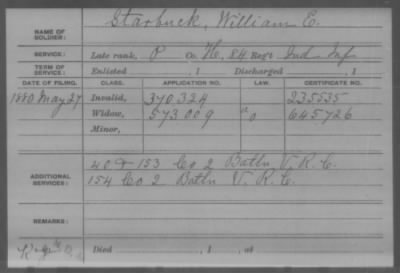 NAME OF SOLDIER: Starbuck, William E.
SERVICE: Late rank, P Co. H, 84 Reg't Ind Inf
TERM OF SERVICE: Enlisted , 1 Discharged , 1
DATE OF FILING. CLASS. APPLICATION NO. LAW. CERTIFICATE NO.
1880 May 27 Invalid, 370324 235535
Widow, 573009 645726
Minor,
40 & 153 Co 2 Batln V. R. C.
ADDITIONAL SERVICES: 154 Co 2 Batln V. R. C.
REMARKS:
Died , 1 , at